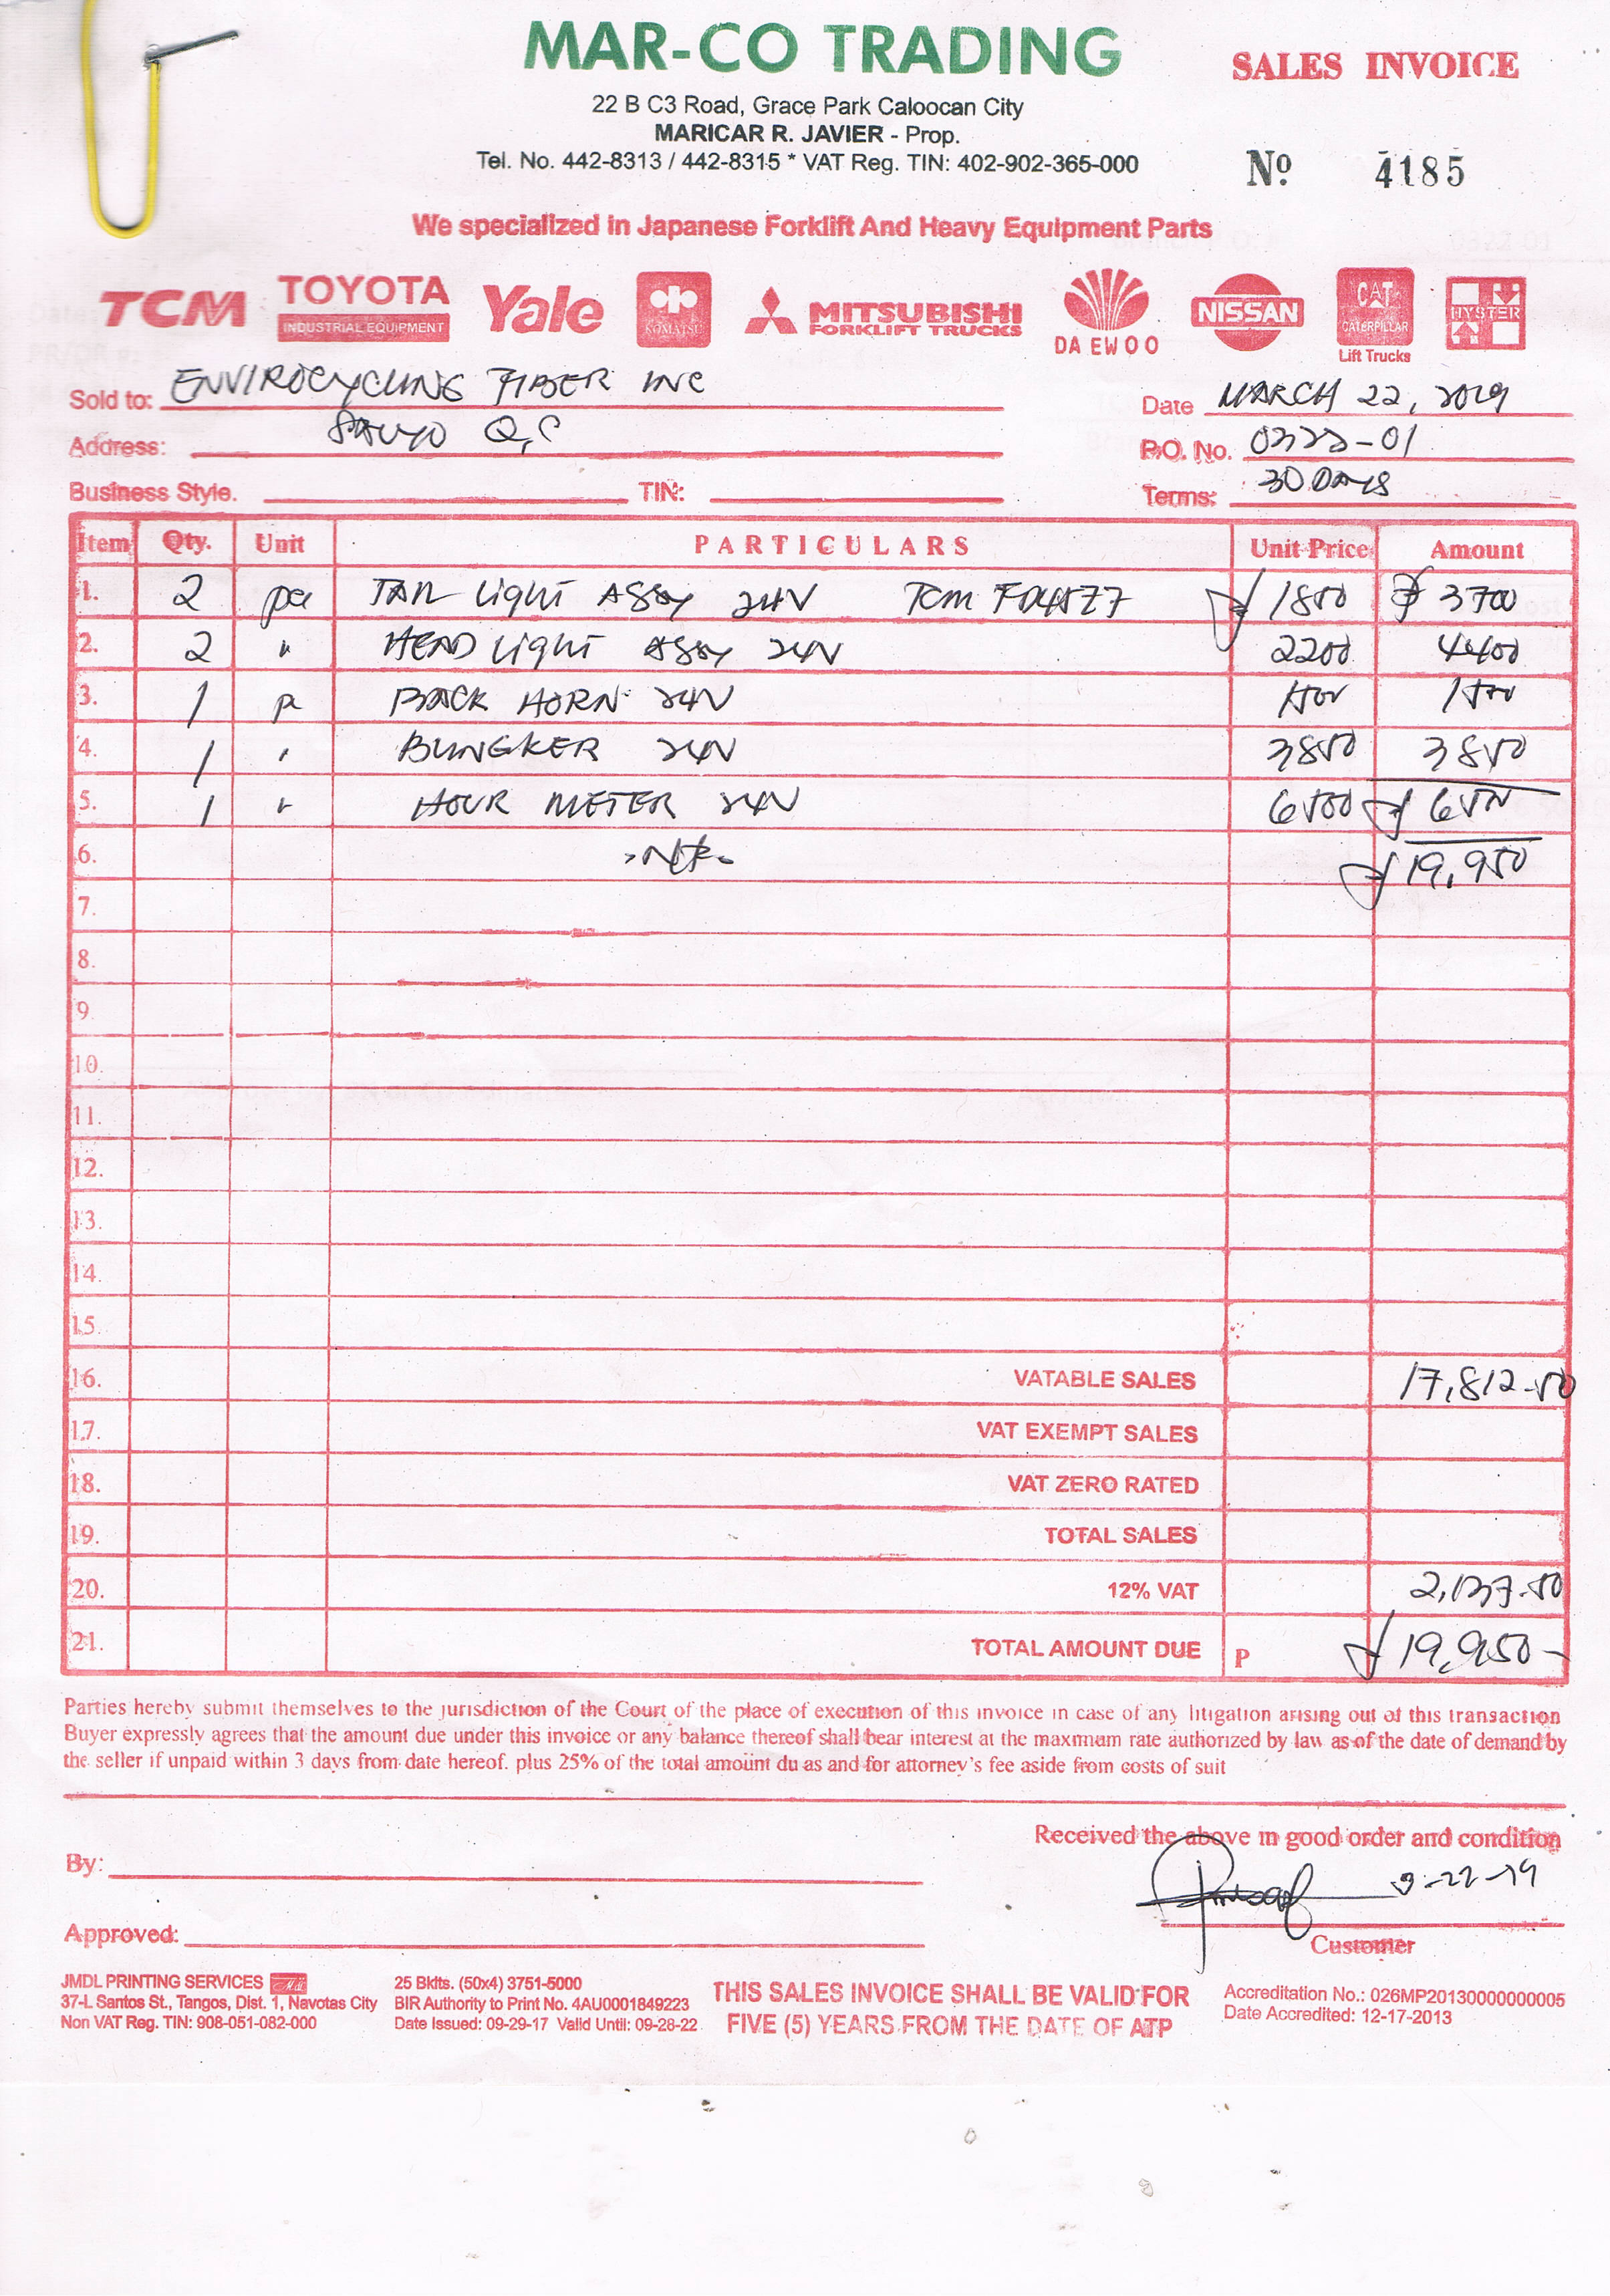 MAR-CO TRADING
SALES INVOICE
22 B C3 Road, Grace Park Caloocan City
MARICAR R. JAVIER - Prop.
Tel. No. 442-8313 / 442-8315 * VAT Reg. TIN: 402-902-365-000
Nº 4185
We specialized in Japanese Forklift And Heavy Equipment Parts
TCM TOYOTA INDUSTRIAL EQUIPMENT Yale KOMATSU MITSUBISHI FORKLIFT TRUCKS DAEWOO NISSAN CAT CATERPILLAR Lift Trucks HYSTER
Sold to: ENVIROCYCLING FIBER INC
Date MARCH 22, 2019
Address: Q,C
P.O. No. 0322-01
Business Style. TIN:
Terms: 30 DAYS
Item Qty. Unit PARTICULARS Unit Price Amount
1. 2 pc TAIL Light ASSY 24V TCM ₱ 1850 ₱ 3700
2. 2 " HEAD Light ASSY 24V 2200 4400
3. 1 pc BACK HORN 24V 1500 1500
4. 1 " BUNGKER 24V 3850 3850
5. 1 " HOUR METER 24V 6500 ₱ 6500
6. ₱ 19,950
7.
8.
9.
10.
11.
12.
13.
14.
15.
16. VATABLE SALES 17,812.50
17. VAT EXEMPT SALES
18. VAT ZERO RATED
19. TOTAL SALES
20. 12% VAT 2,137.50
21. TOTAL AMOUNT DUE P ₱ 19,950-
Parties hereby submit themselves to the jurisdiction of the Court of the place of execution of this invoice in case of any litigation arising out of this transaction
Buyer expressly agrees that the amount due under this invoice or any balance thereof shall bear interest at the maxmum rate authorized by law as of the date of demand by
the seller if unpaid within 3 days from date hereof. plus 25% of the total amount du as and for attorney's fee aside from costs of suit
Received the above in good order and condition
By:
3-22-19
Approved:
Customer
JMDL PRINTING SERVICES
37-L Santos St., Tangos, Dist. 1, Navotas City
Non VAT Reg. TIN: 908-051-082-000
25 Bklts. (50x4) 3751-5000
BIR Authority to Print No. 4AU0001849223
Date Issued: 09-29-17 Valid Until: 09-28-22
THIS SALES INVOICE SHALL BE VALID FOR
FIVE (5) YEARS FROM THE DATE OF ATP
Accreditation No.: 026MP20130000000005
Date Accredited: 12-17-2013